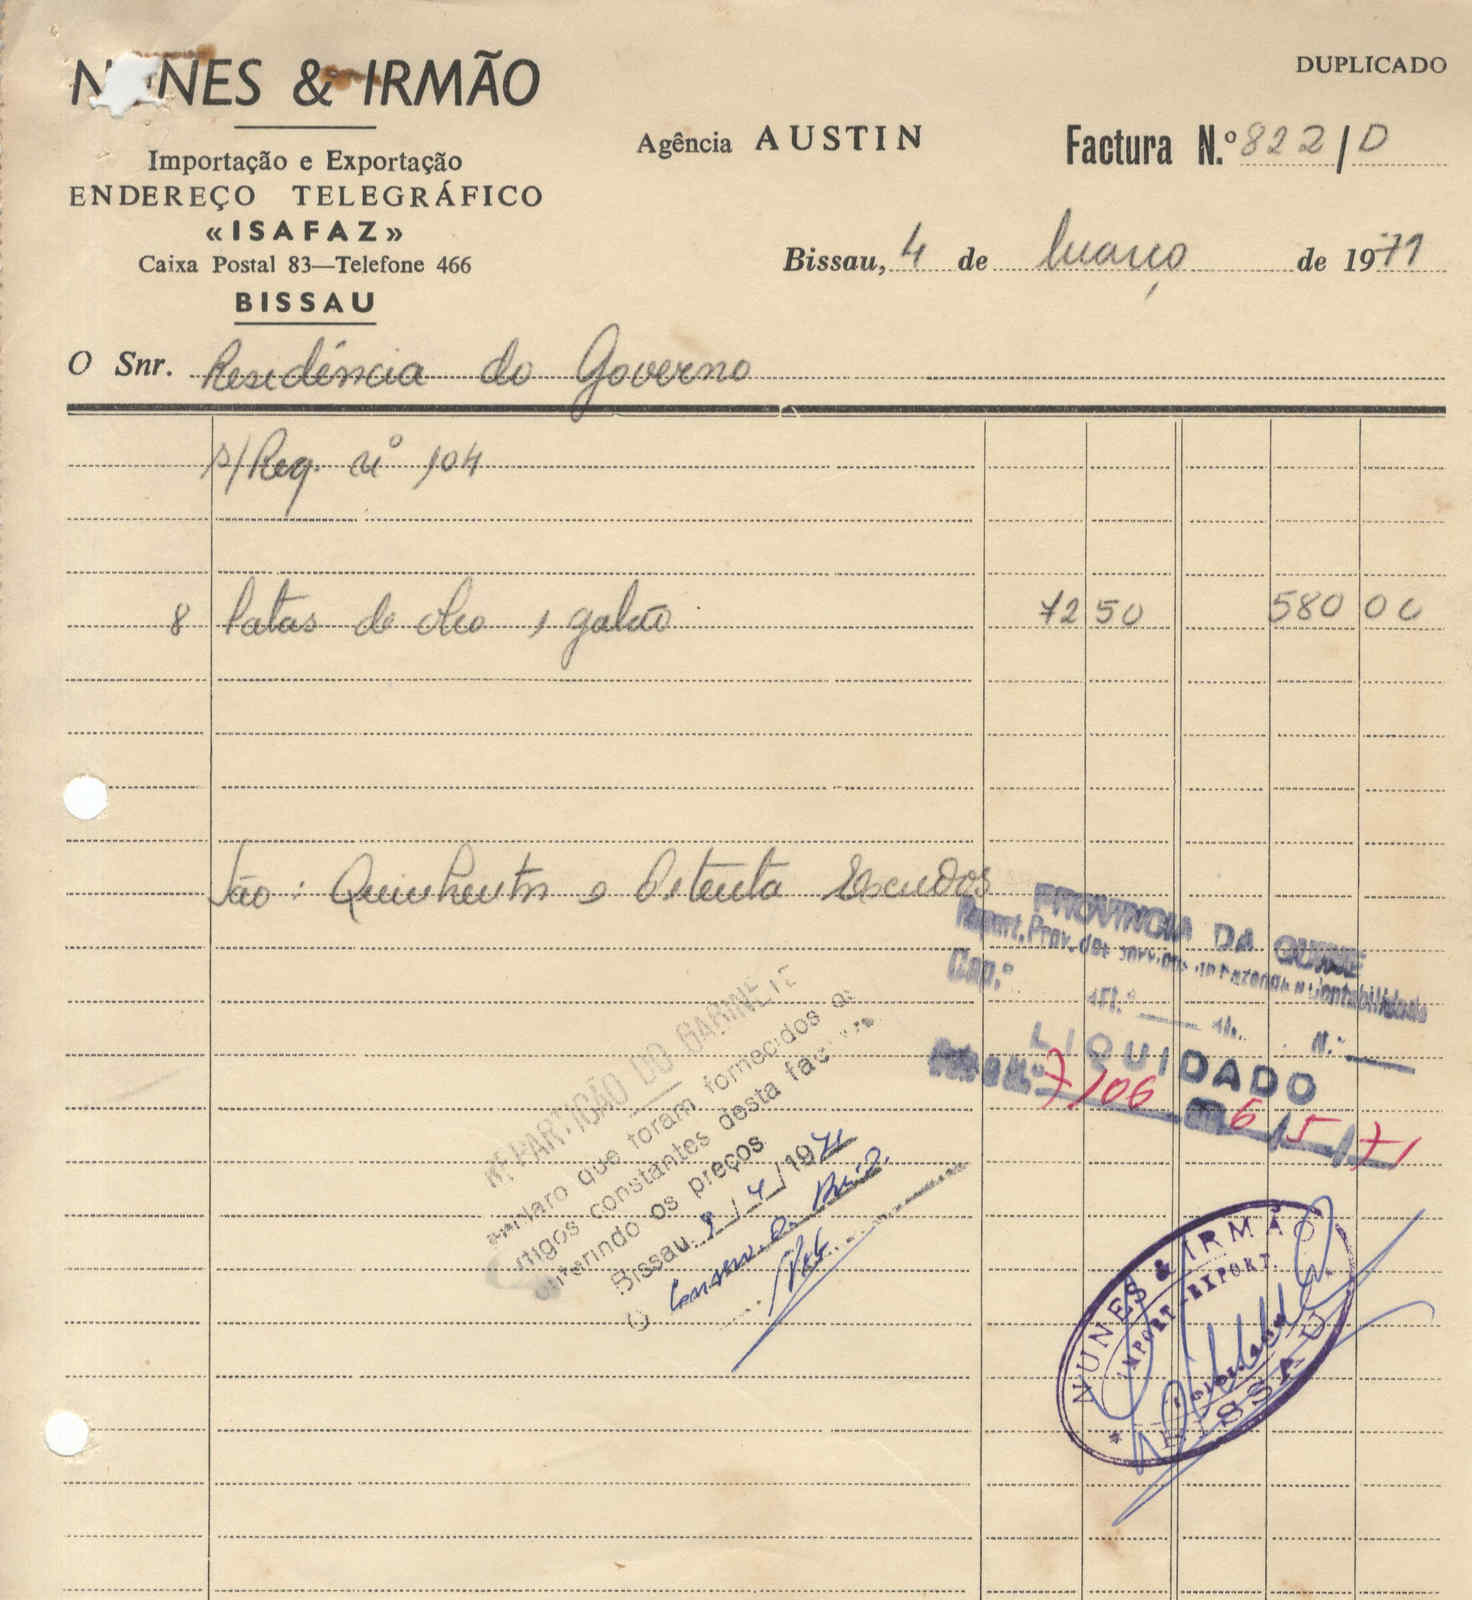 NUNES & IRMÃO
DUPLICADO
Agência AUSTIN
Factura N.º 822/D
Importação e Exportação
ENDEREÇO TELEGRÁFICO
«ISAFAZ»
Caixa Postal 83—Telefone 466
BISSAU
Bissau, 4 de Março de 1971
O Snr. Residência do Governo
s/Req. nº 104
8 Latas de oleo 1 galão 72 50 580 00
São: Quinhentos e Oitenta Escudos
PROVINCIA DA GUINE
Repart. Prov. dos Serviços de Fazenda e Contabilidade
Cap.º Art.º N.º
LIQUIDADO
7106 6/5/71
REPARTIÇÃO DO GABINETE
Declaro que foram fornecidos os
artigos constantes desta factura
conferindo os preços
Bissau, /4/1971
O
NUNES & IRMÃO
IMPORT-EXPORT.
* BISSAU